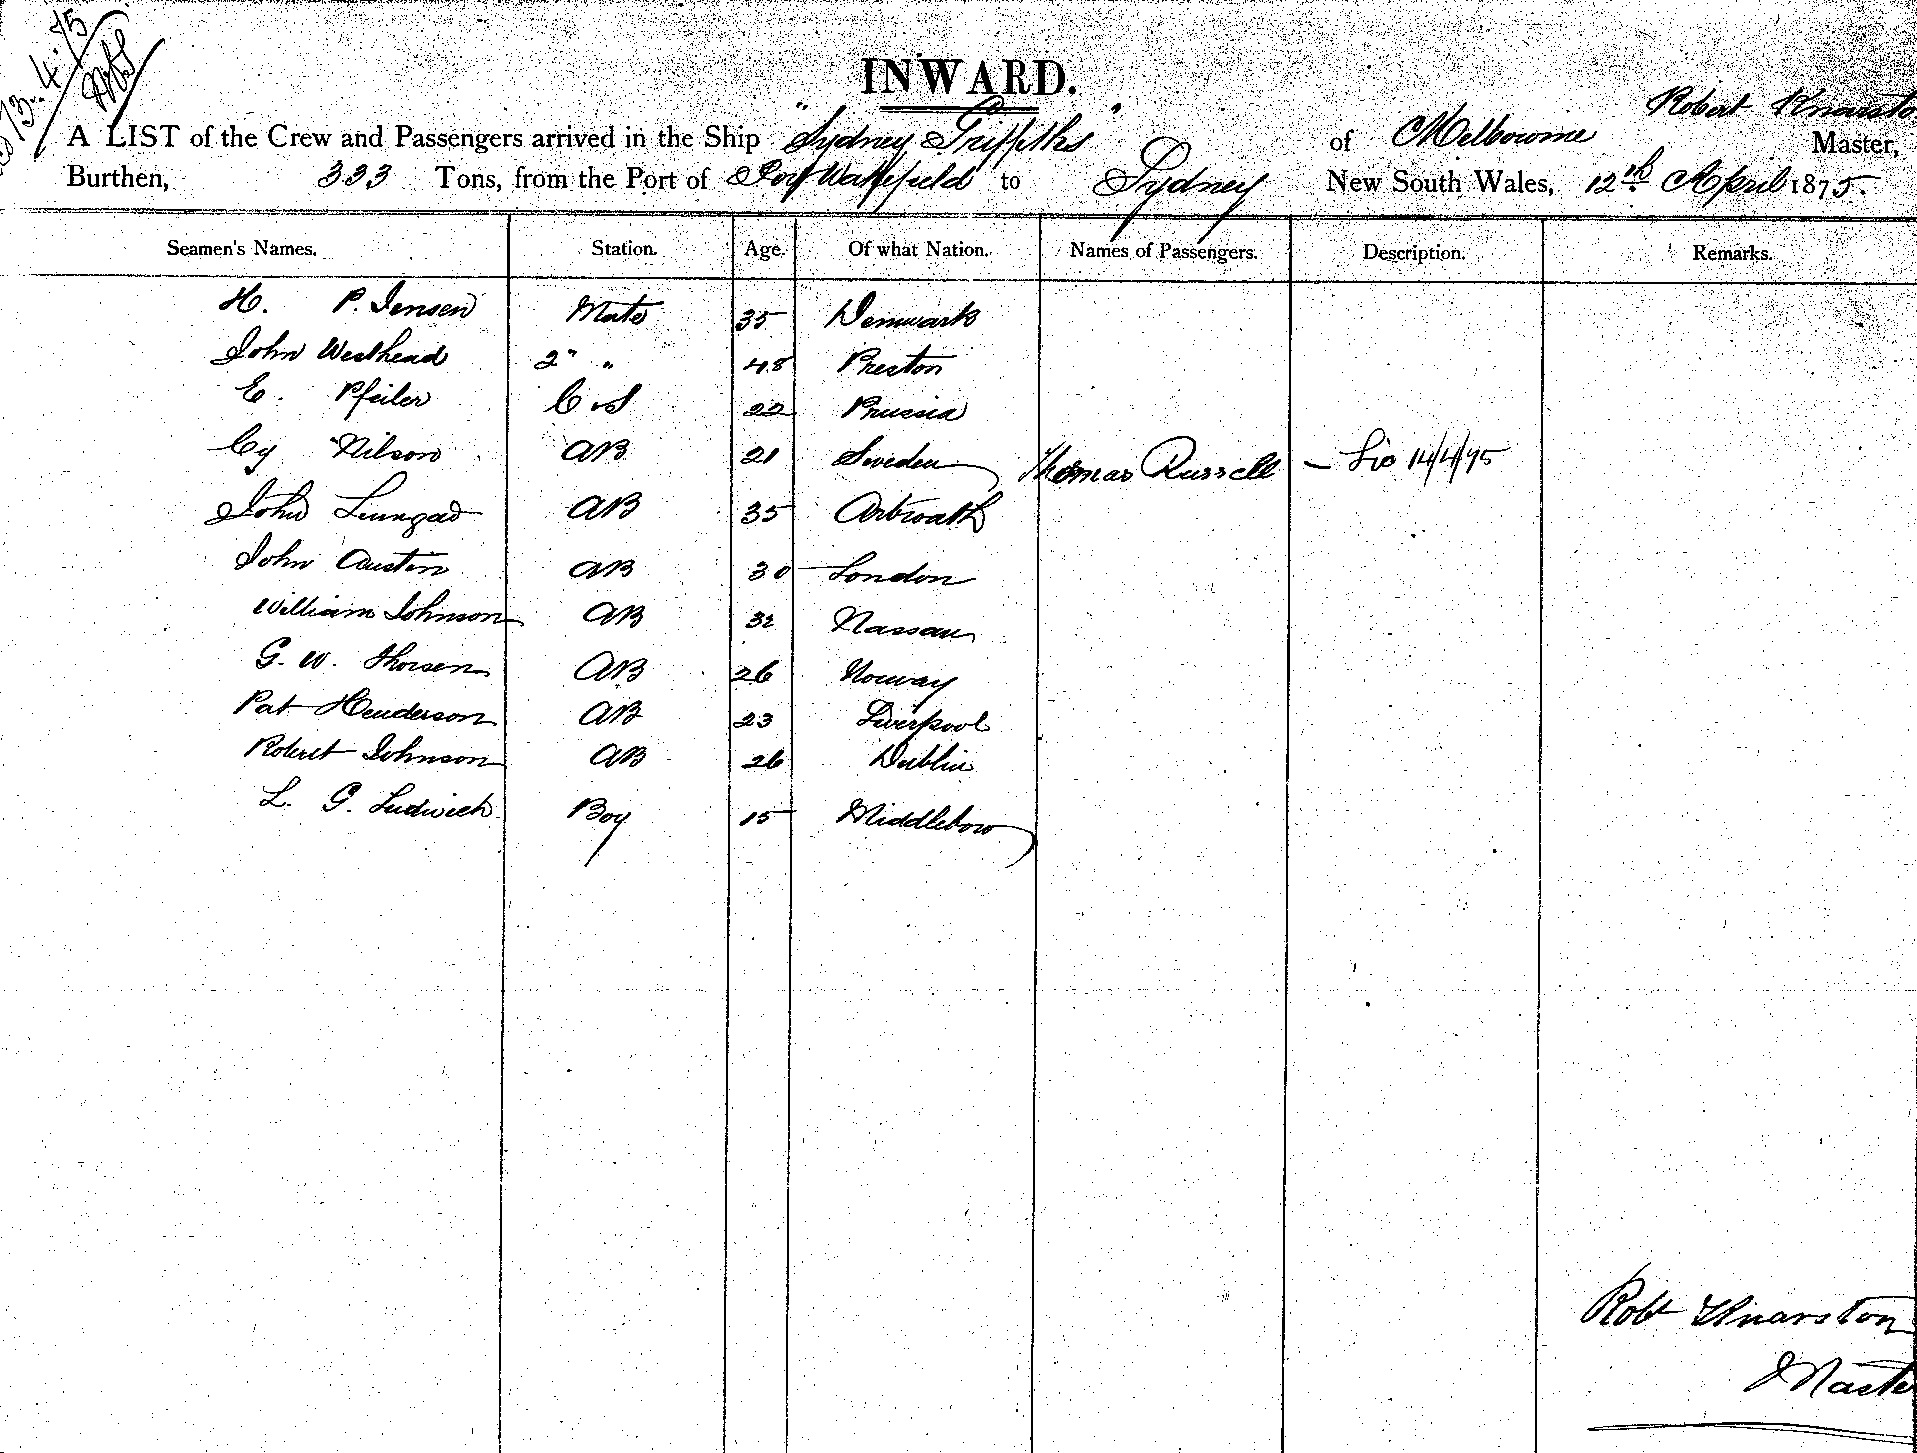 13.4.75
INWARD.
Robert Knarsto
A LIST of the Crew and Passengers arrived in the Ship "Sydney Griffiths" of Melbourne Master,
Burthen, 333 Tons, from the Port of Port Wakefield to Sydney New South Wales, 12th April 1875.
Seamen's Names. Station. Age. Of what Nation. Names of Passengers. Description. Remarks.
H. P. Jensen Mate 35 Denmark
John Westhead 2" " 48 Preston
E. Pfeiler C & S 22 Prussia
Cy Nilson AB 21 Sweden Thomas Russell — 14/4/75
John AB 35 Arbroath
John Austin AB 30 London
William Johnson AB 32 Nassau
G. W. Thorsen AB 26 Norway
Pat Henderson AB 23 Liverpool
Robert Johnson AB 26 Dublin
L. G. Ludwick Boy 15 Middlebow
Robt Knarston
Maste